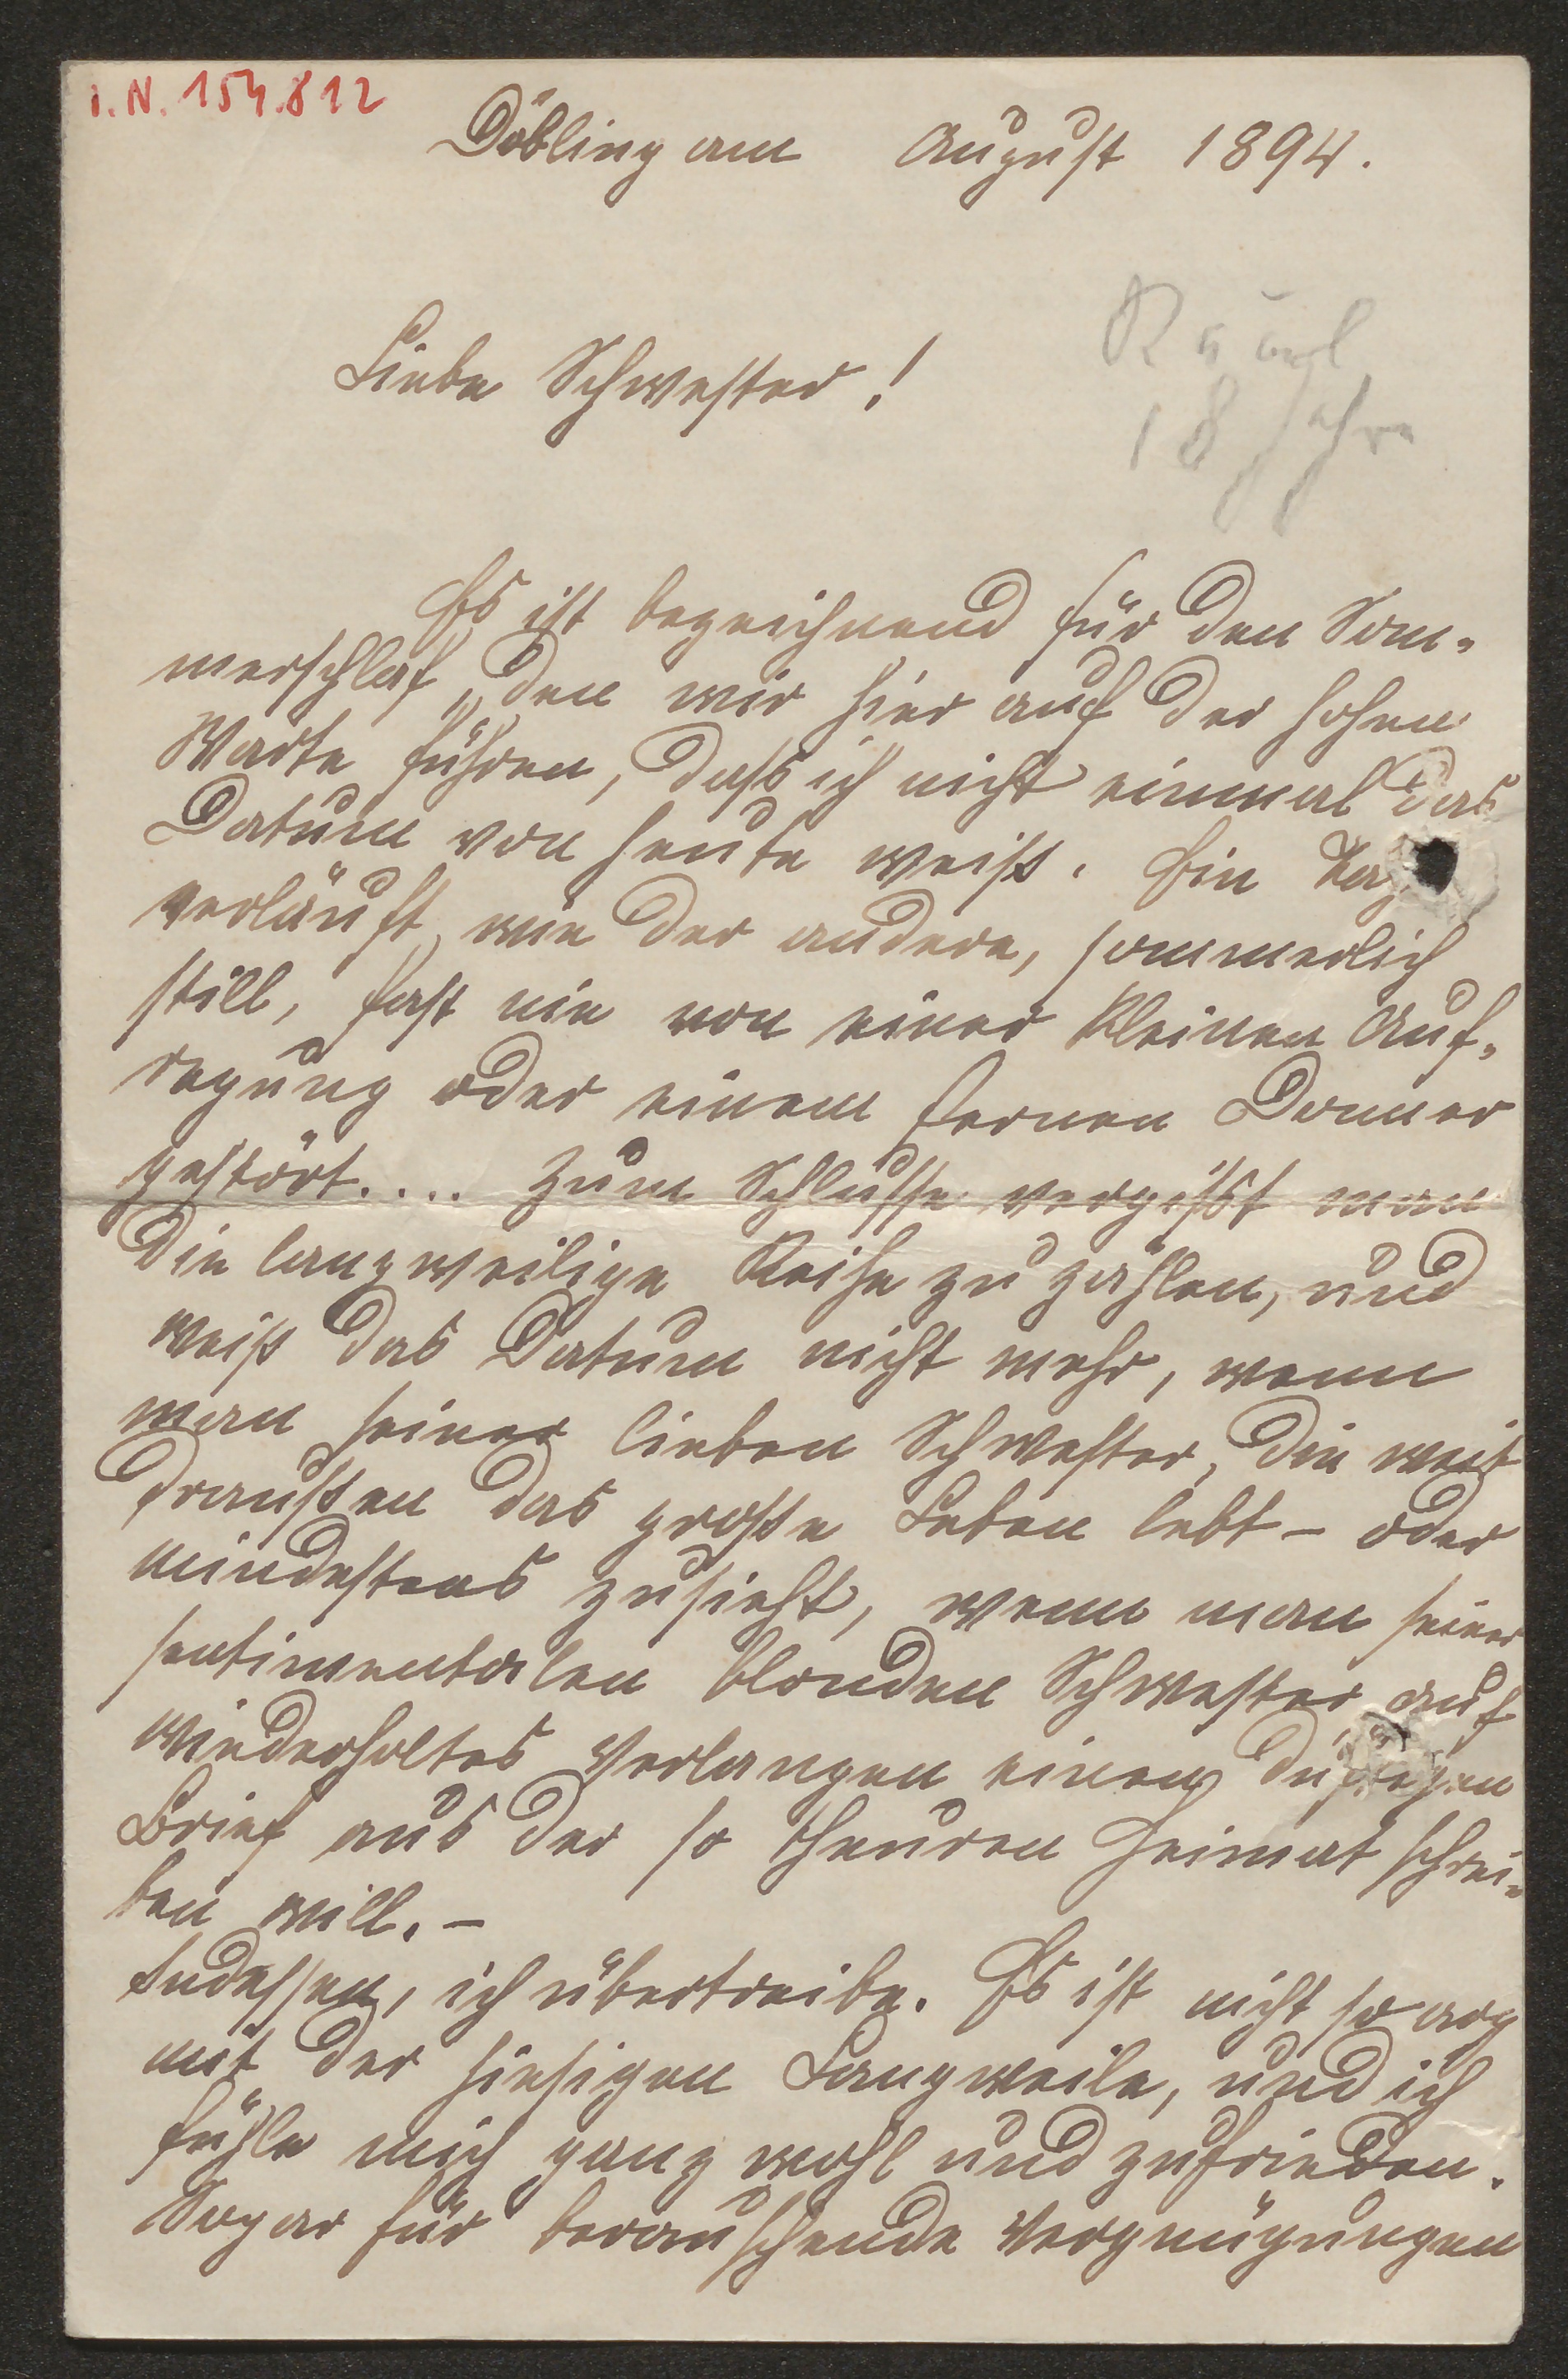 I.N. 154.812
Döbling am August 1894.
Liebe Schwester!
Raoul
18 Jahre
Es ist bezeichnend für den Som-
merschlaf, den wir hier auf der hohen
Warte führen, dass ich nicht einmal das
Datum von heute weiß. Ein Tag
verläuft wie der andere, sommerlich
still, fast nie von einer kleinen Auf-
regung oder einem fernen Donner
gestört.... Zum Schlusse vergisst man
die langweilige Reihe zu zählen, und
weiß das Datum nicht mehr, wenn
man seiner lieben Schwester, die weit
draußen das große Leben lebt – oder
mindestens zusieht, wenn man seiner
sentimentalen blonden Schwester auf
wiederholtes Verlangen einen
Brief aus der so theuren Heimat schrei-
ben will. –
Indessen, ich übertreibe. Es ist nicht so arg
mit der hiesigen Langweile, und ich
fühle mich ganz wohl und zufrieden.
Sogar für berauschende Vergnügungen